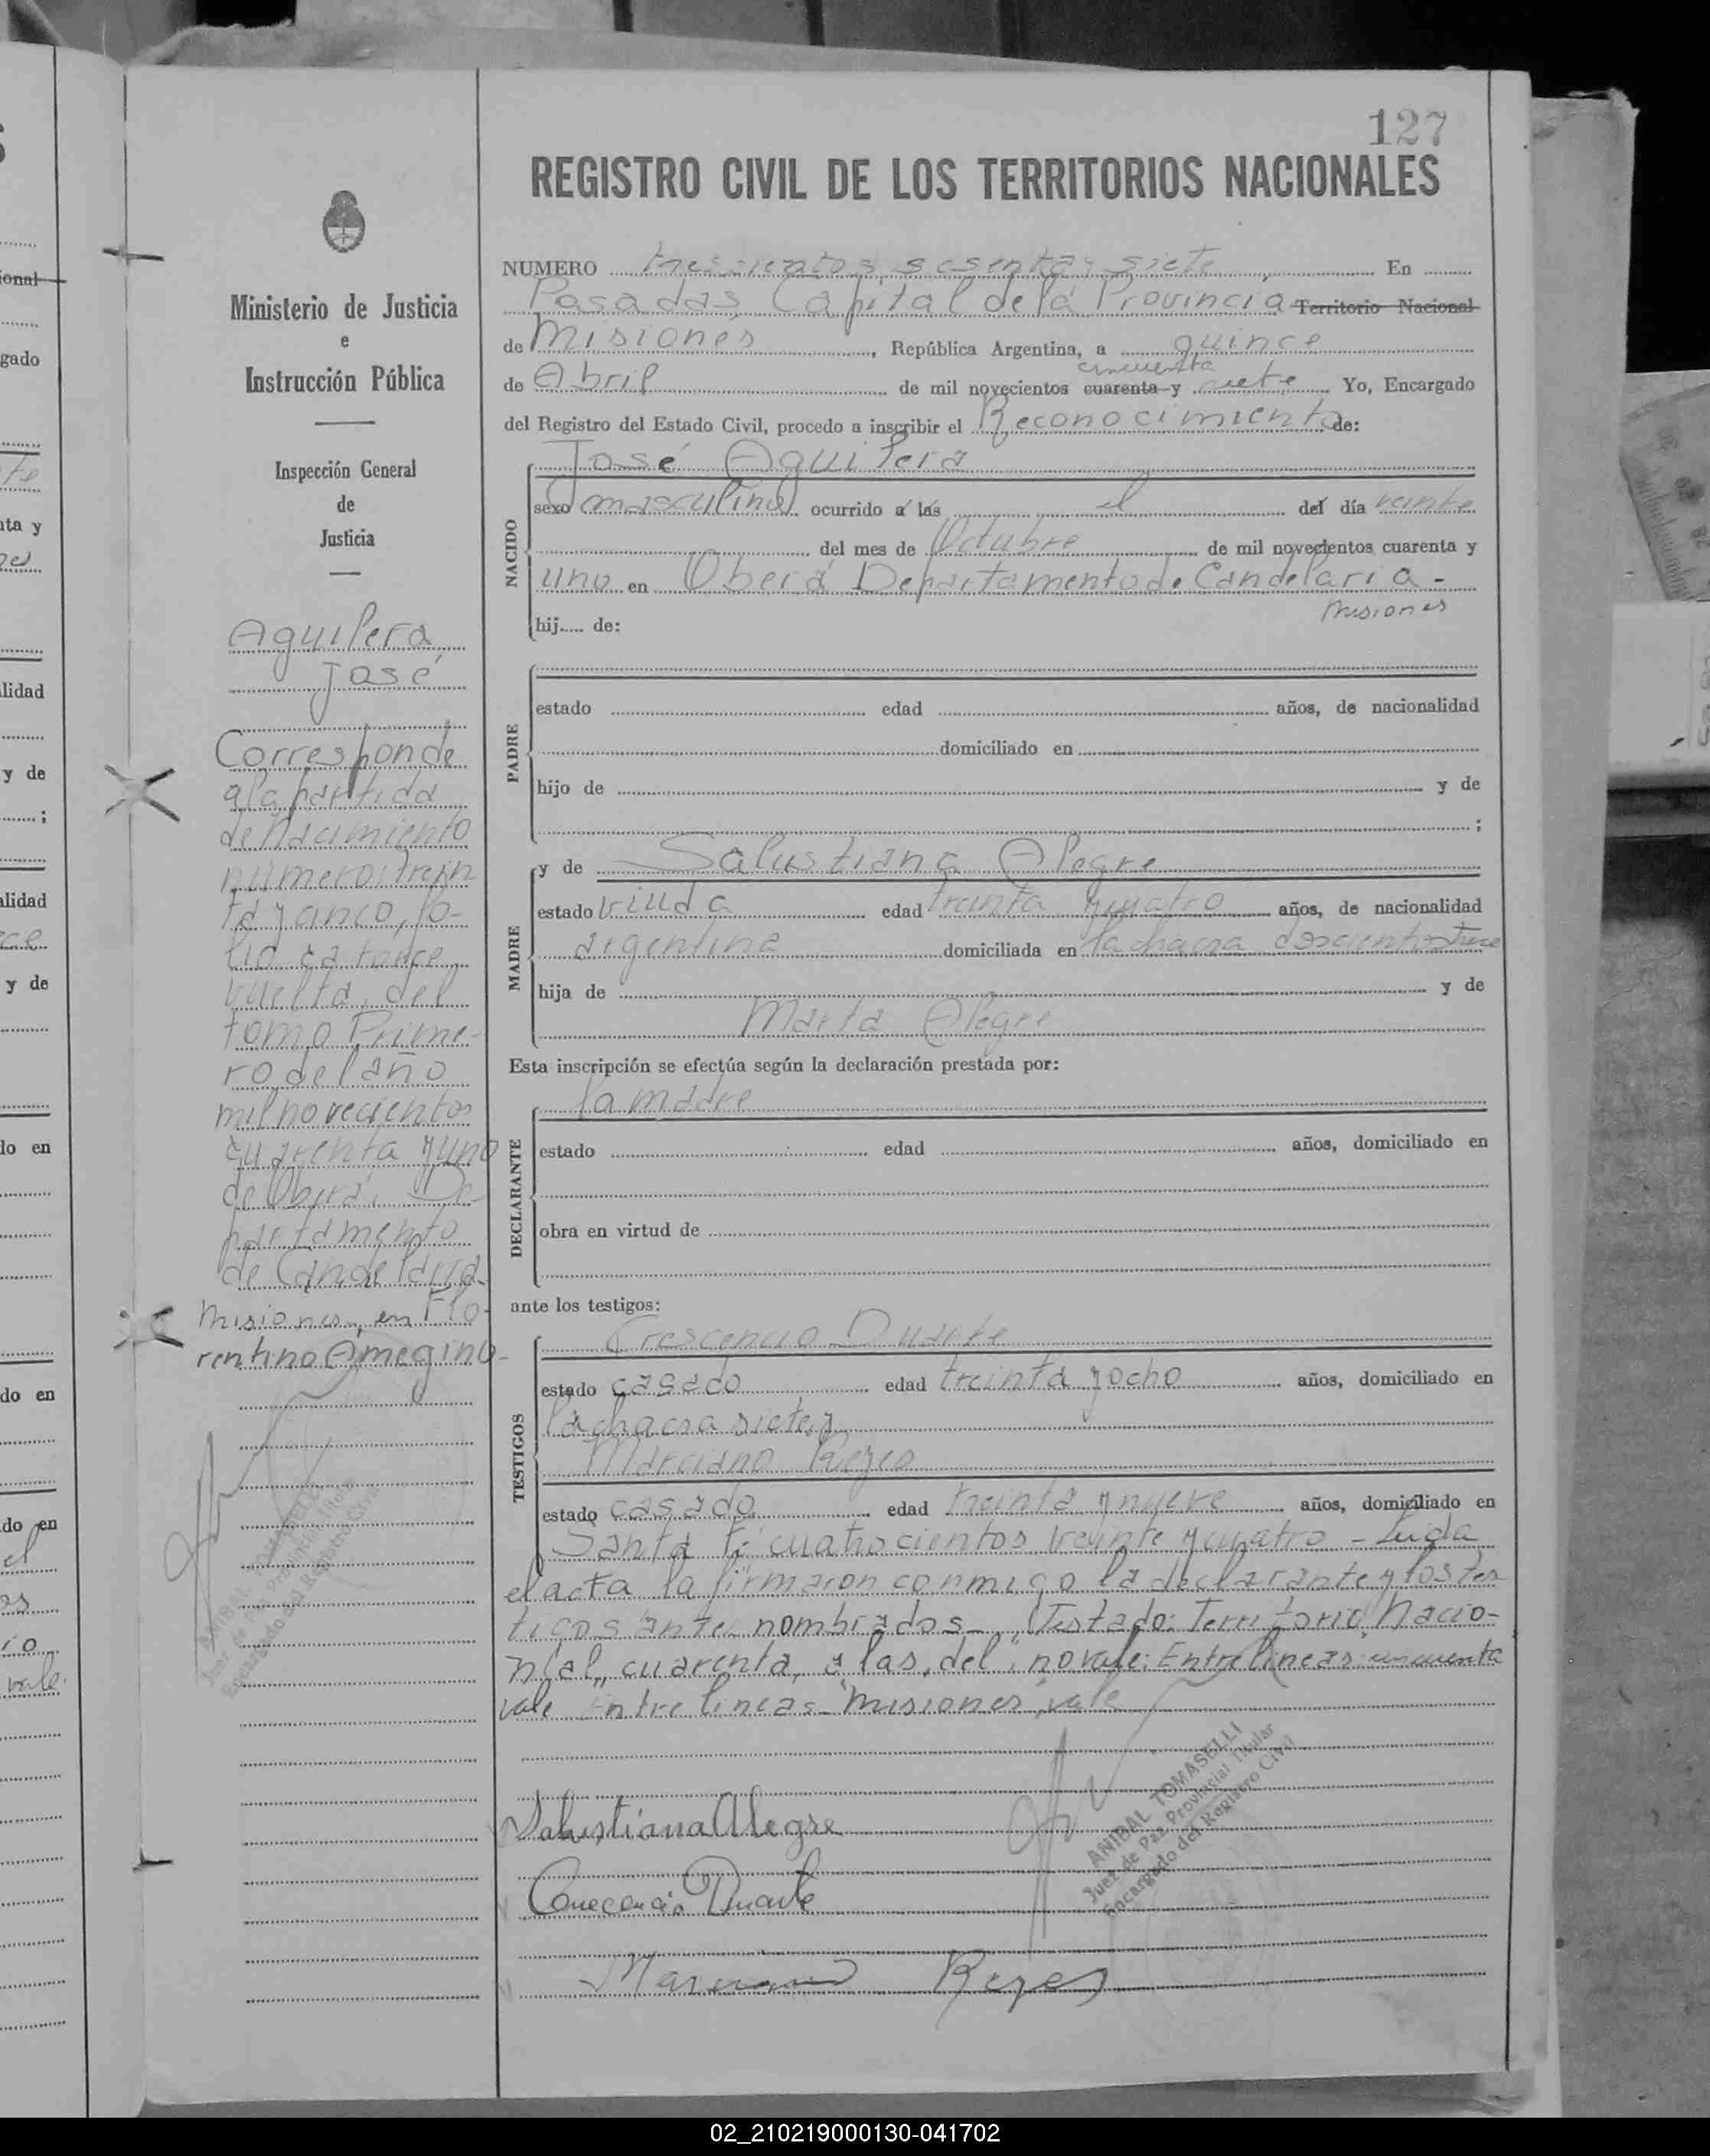 127
REGISTRO CIVIL DE LOS TERRITORIOS NACIONALES
Ministerio de Justicia
e
Instrucción Pública
Inspección General
de
Justicia
Aguilera
José
Corresponde
a la partida
de Nacimiento
número: trein
ta y cinco, fo-
lio catorce
vuelta, del
tomo Prime-
ro del año
mil novecientos
cuarenta y uno
de Oberá, De-
partamento
de Candelaria
Misiones, en Flo-
rentino Ameghino
ANIBAL TOMASELLI
Juez de Paz Provincial Titular
Encargado del Registro Civil
NUMERO trescientos sesenta y siete En
Posadas, Capital de la Provincia Territorio Nacional
de Misiones, República Argentina, a quince
cincuenta
de Abril de mil novecientos cuarenta y siete Yo, Encargado
del Registro del Estado Civil, procedo a inscribir el Reconocimiento de:
NACIDO
José Aguilera
sexo masculino ocurrido a las el del día veinte
del mes de Octubre de mil novecientos cuarenta y
uno en Oberá Departamento de Candelaria -
Misiones
hij.... de:
PADRE
estado edad años, de nacionalidad
domiciliado en
hijo de y de
;
MADRE
y de Salustiana Alegre
estado viuda edad treinta y cuatro años, de nacionalidad
argentina domiciliada en la chacra doscientos trece
hija de y de
Marta Alegre
Esta inscripción se efectúa según la declaración prestada por:
DECLARANTE
la madre
estado edad años, domiciliado en
obra en virtud de
ante los testigos:
TESTIGOS
Crescencio Duarte
estado casado edad treinta y ocho años, domiciliado en
la chacra siete y
Marciano Reyes
estado casado edad treinta y nueve años, domiciliado en
Santa Fé cuatrocientos veinte y cuatro - Leida
el acta la firmaron conmigo la declarante y los tes
tigos antes nombrados - Testado: Territorio Nacio-
nal, cuarenta, a las, del" no vale: Entre lineas: cincuenta
vale Entre lineas "Misiones", vale
Salustiana Alegre
Crecencio Duarte
Marciano Reyes
ANIBAL TOMASELLI
Juez de Paz Provincial Titular
Encargado del Registro Civil
02_210219000130-041702